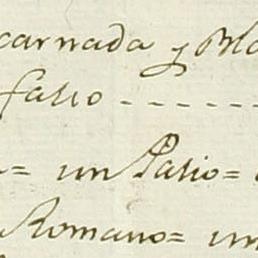 carnada y Bla
falio - - - - - -
= un Patio=
Romano= un